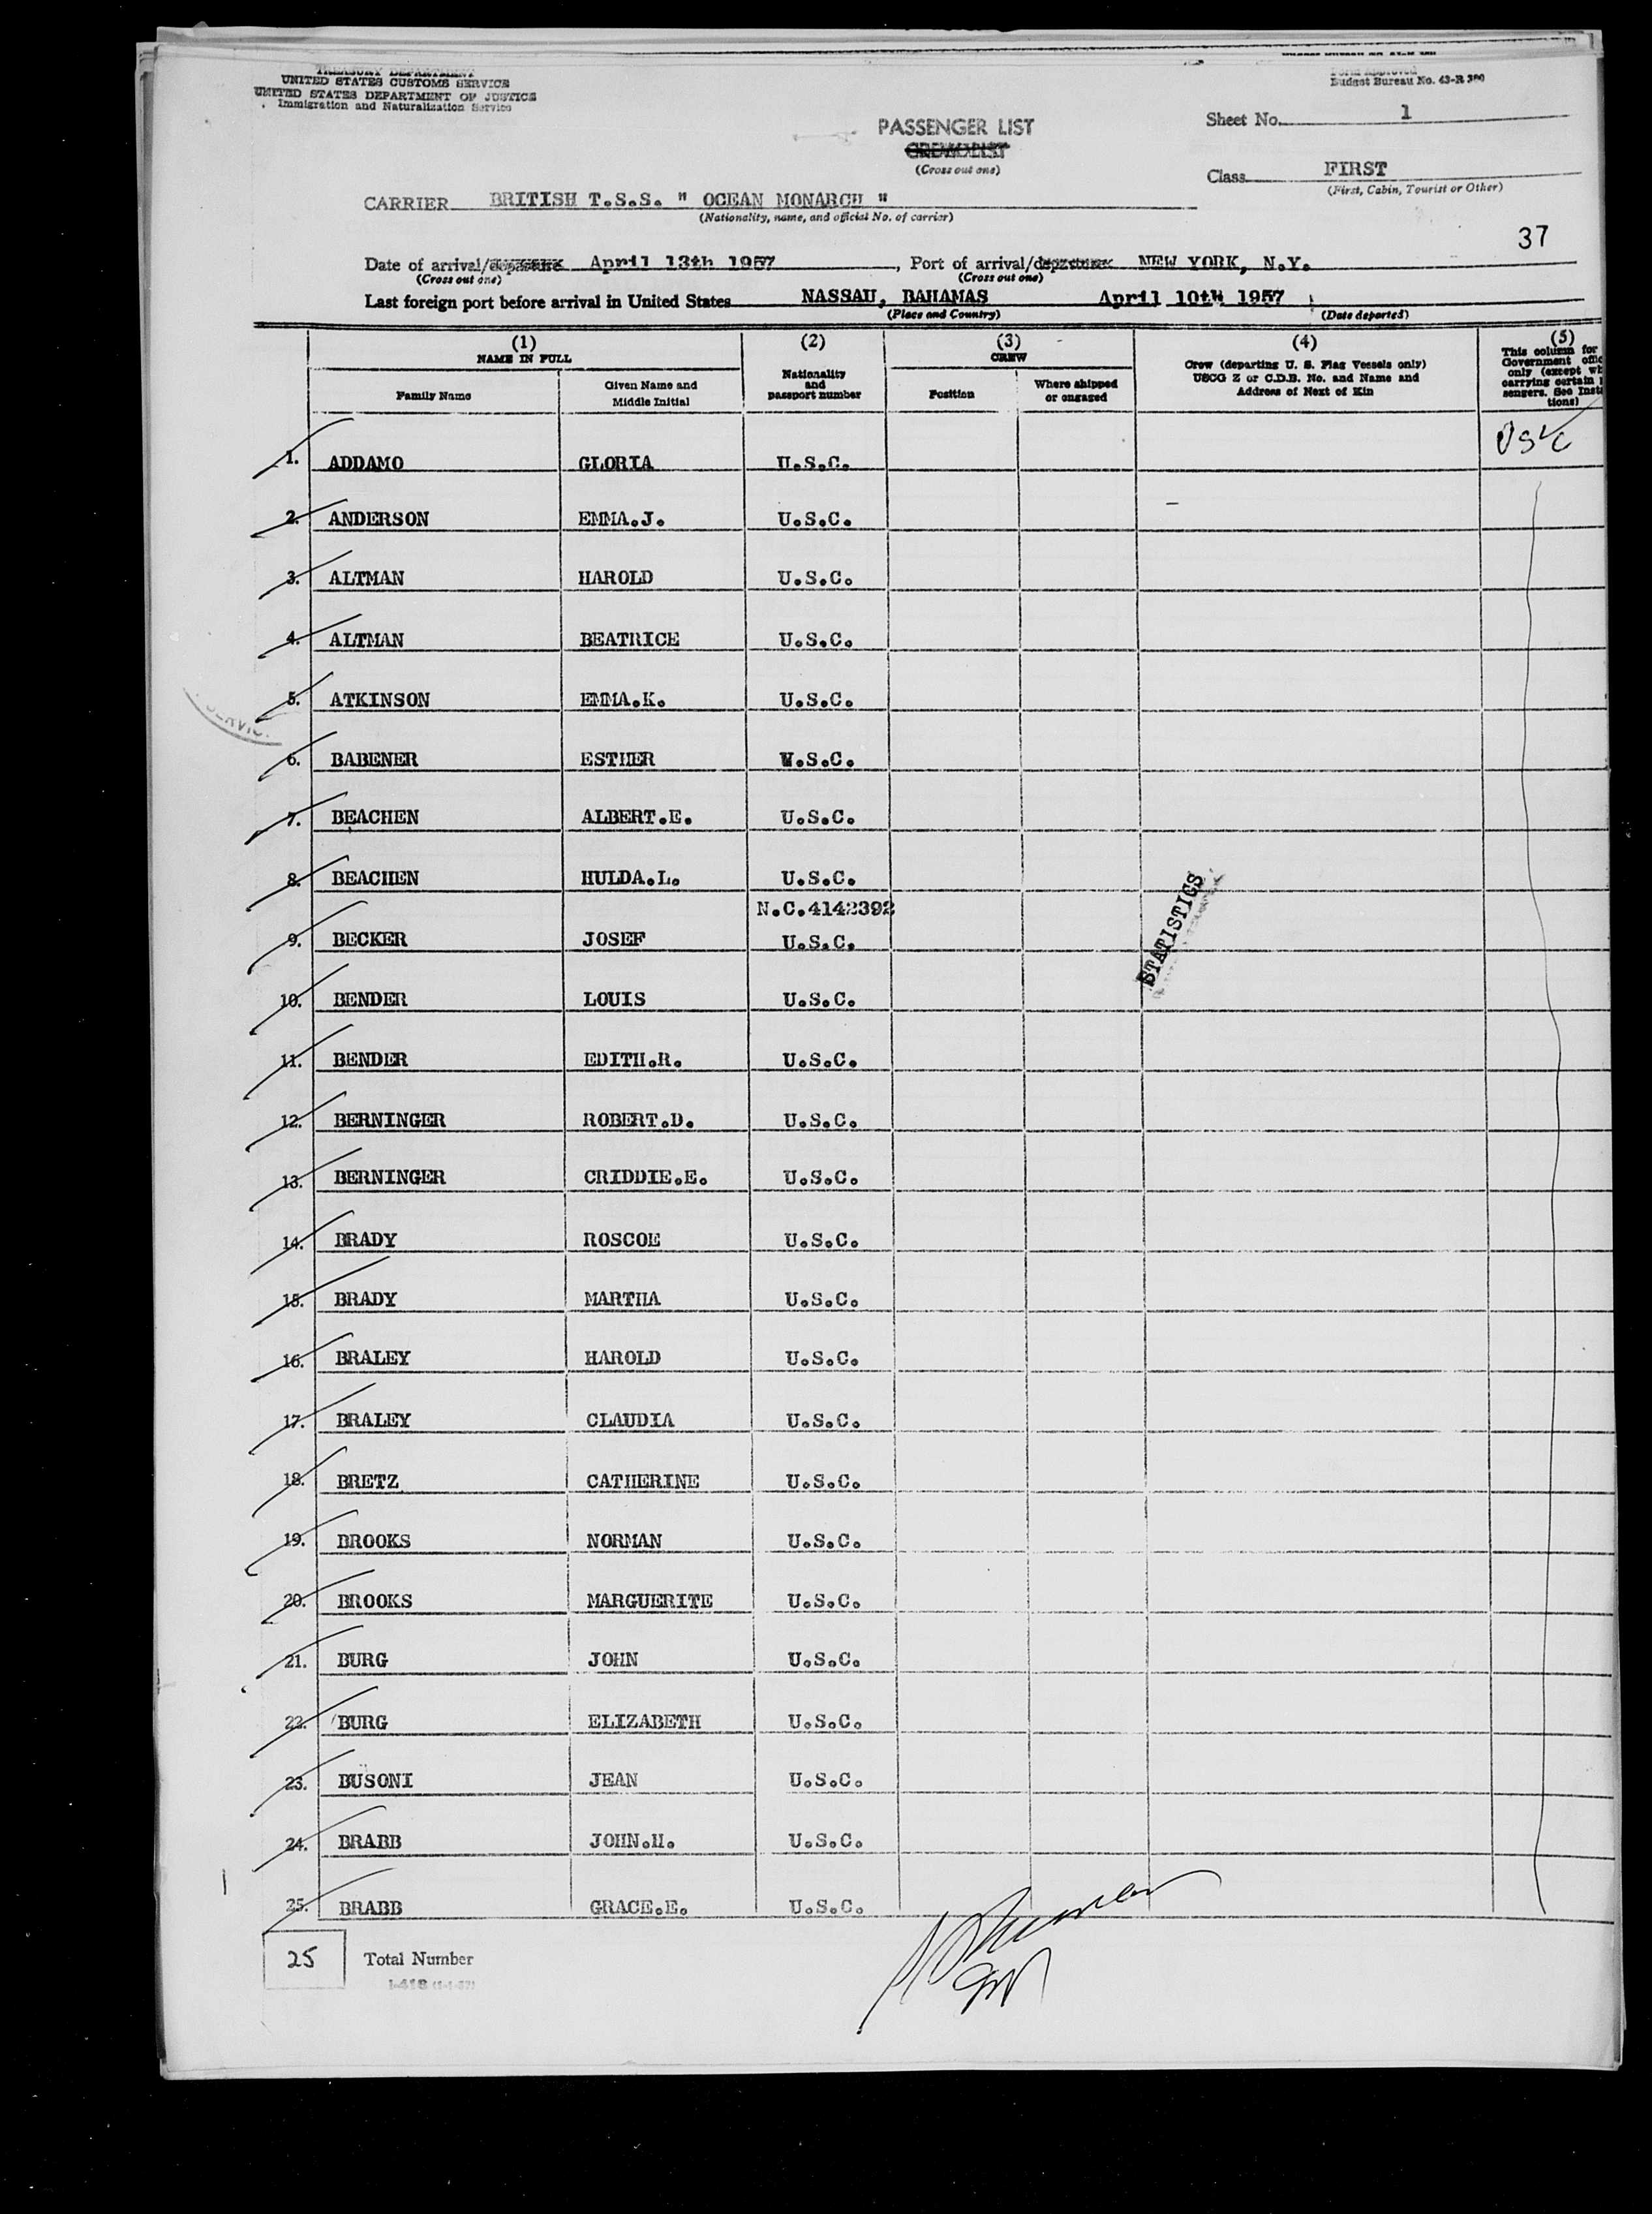 TREASURY DEPARTMENT
UNITED STATES CUSTOMS SERVICE
UNITED STATES DEPARTMENT OF JUSTICE
Immigration and Naturalization Service
Form Approved
Budget Bureau No. 43-R 390
Sheet No. 1
PASSENGER LIST
CREW LIST
(Cross out one)
Class FIRST
(First, Cabin, Tourist or Other)
CARRIER BRITISH T.S.S. " OCEAN MONARCH "
(Nationality, name, and official No. of carrier)
37
Date of arrival/departure April 13th 1957, Port of arrival/departure NEW YORK, N.Y.
(Cross out one) (Cross out one)
Last foreign port before arrival in United States NASSAU, BAHAMAS April 10th 1957
(Place and Country) (Date departed)
(1) (2) (3) (4) (5)
NAME IN FULL
Family Name
Given Name and Middle Initial
Nationality and passport number
CREW
Position
Where shipped or engaged
Crew (departing U. S. Flag Vessels only)
USCG Z or C.D.B. No. and Name and
Address of Next of Kin
This column for
Government
only (except
carrying certain
sengers. See
tions)
USC
1. ADDAMO GLORIA U.S.C.
2. ANDERSON EMMA.J. U.S.C.
3. ALTMAN HAROLD U.S.C.
4. ALTMAN BEATRICE U.S.C.
5. ATKINSON EMMA.K. U.S.C.
6. BABENER ESTHER U.S.C.
7. BEACHEN ALBERT.E. U.S.C.
8. BEACHEN HULDA.L. U.S.C.
N.C.4142392
9. BECKER JOSEF U.S.C.
STATISTICS
10. BENDER LOUIS U.S.C.
11. BENDER EDITH.R. U.S.C.
12. BERNINGER ROBERT.D. U.S.C.
13. BERNINGER CRIDDIE.E. U.S.C.
14. BRADY ROSCOE U.S.C.
15. BRADY MARTHA U.S.C.
16. BRALEY HAROLD U.S.C.
17. BRALEY CLAUDIA U.S.C.
18. BRETZ CATHERINE U.S.C.
19. BROOKS NORMAN U.S.C.
20. BROOKS MARGUERITE U.S.C.
21. BURG JOHN U.S.C.
22. BURG ELIZABETH U.S.C.
23. BUSONI JEAN U.S.C.
24. BRABB JOHN.H. U.S.C.
25. BRABB GRACE.E. U.S.C.
25 Total Number
I-418 (1-1-57)